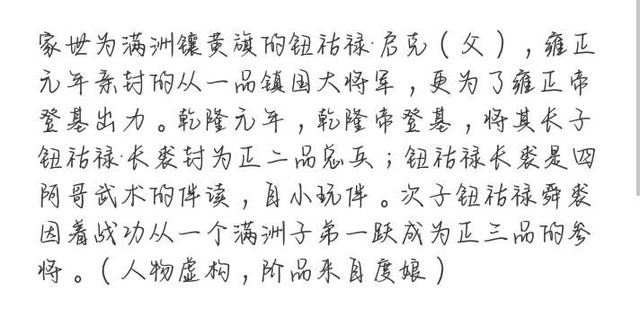 家世为满洲镶黄旗的钮祜禄·启克（父），雍正
元年亲封的从一品镇国大将军，更为了雍正帝
登基出力。乾隆元年，乾隆帝登基，将其长子
钮祜禄·长裘封为正二品总兵；钮祜禄长裘是四
阿哥武术的伴读，自小玩伴。次子钮祜禄舜裘
因着战功从一个满洲子弟一跃成为正三品的参
将。（人物虚构，阶品来自度娘）